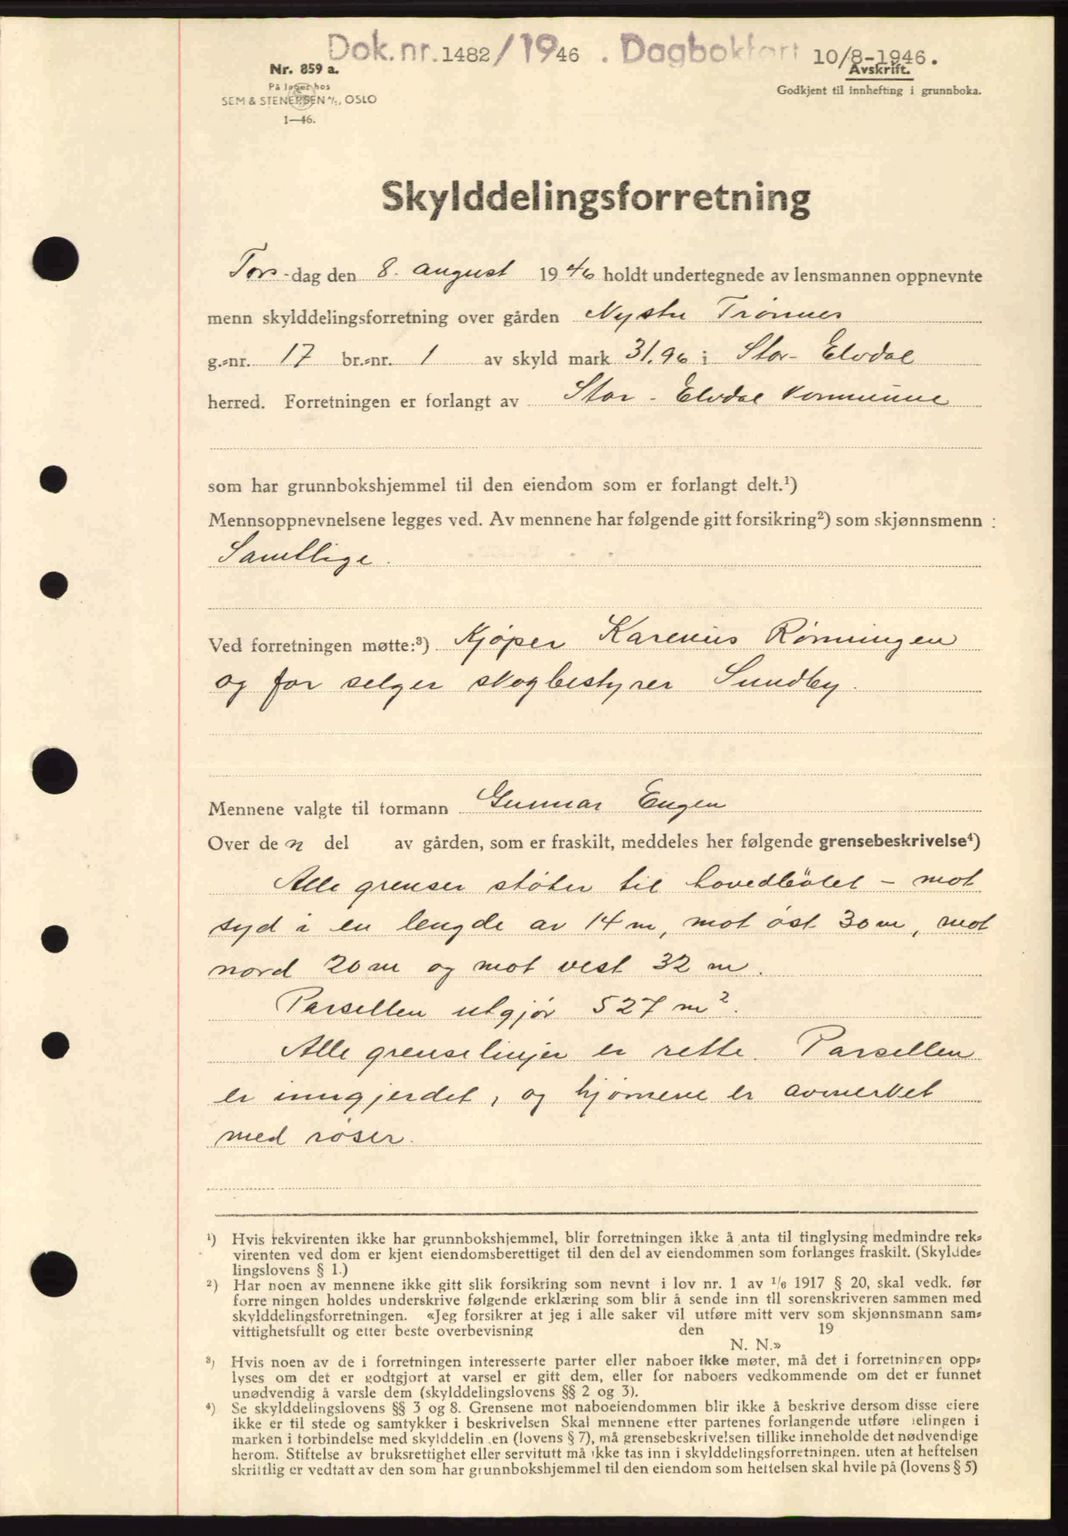 Dok.nr. 1482/1946. Dagbokført 10/8-1946.
Nr. 859 a.
På lager hos
SEM & STENERSEN A/S, OSLO
1—46.
Avskrift.
Godkjent til innhefting i grunnboka.
Skylddelingsforretning
Tors-dag den 8. august 1946 holdt undertegnede av lensmannen oppnevnte
menn skylddelingsforretning over gården Nystu Trønnes
g.-nr. 17 br.-nr. 1 av skyld mark 31.96 i Stor-Elvdal
herred. Forretningen er forlangt av Stor-Elvdal kommune
som har grunnbokshjemmel til den eiendom som er forlangt delt.¹)
Mennsoppnevnelsene legges ved. Av mennene har følgende gitt forsikring²) som skjønnsmenn :
Samtlige.
Ved forretningen møtte:³) Kjøper Karenius Rønningen
og for selger skogbestyrer Sundby.
Mennene valgte til formann Gunnar Engen
Over den del av gården, som er fraskilt, meddeles her følgende grensebeskrivelse⁴)
Alle grenser støter til hovedbølet - mot
syd i en lengde av 14 m, mot øst 30 m, mot
nord 20 m og mot vest 32 m.
Parsellen utgjør 527 m².
Alle grenselinjer er rette. Parsellen
er inngjerdet, og hjørnene er avmerket
med røser.
¹) Hvis rekvirenten ikke har grunnbokshjemmel, blir forretningen ikke å anta til tinglysing medmindre rek-
virenten ved dom er kjent eiendomsberettiget til den del av eiendommen som forlanges fraskilt. (Skyldde-
lingslovens § 1.)
²) Har noen av mennene ikke gitt slik forsikring som nevnt i lov nr. 1 av 1/6 1917 § 20, skal vedk. før
forretningen holdes underskrive følgende erklæring som blir å sende inn til sorenskriveren sammen med
skylddelingsforretningen. «Jeg forsikrer at jeg i alle saker vil utføre mitt verv som skjønnsmann sam-
vittighetsfullt og etter beste overbevisning den 19
N. N.»
³) Hvis noen av de i forretningen interesserte parter eller naboer ikke møter, må det i forretningen opp-
lyses om det er godtgjort at varsel er gitt dem, eller for naboers vedkommende om det er funnet
unødvendig å varsle dem (skylddelingslovens §§ 2 og 3).
⁴) Se skylddelingslovens §§ 3 og 8. Grensene mot naboeiendommen blir ikke å beskrive dersom disse eiere
ikke er til stede og samtykker i beskrivelsen Skal mennene etter partenes forlangende utføre delingen i
marken i forbindelse med skylddelingen (lovens § 7), må grensebeskrivelsen tillike inneholde det nødvendige
herom. Stiftelse av bruksrettighet eller servitutt må ikke tas inn i skylddelingsforretningen. uten at heftelsen
skriftlig er vedtatt av den som har grunnbokshjemmel til den eiendom som heftelsen skal hvile på (lovens § 5)